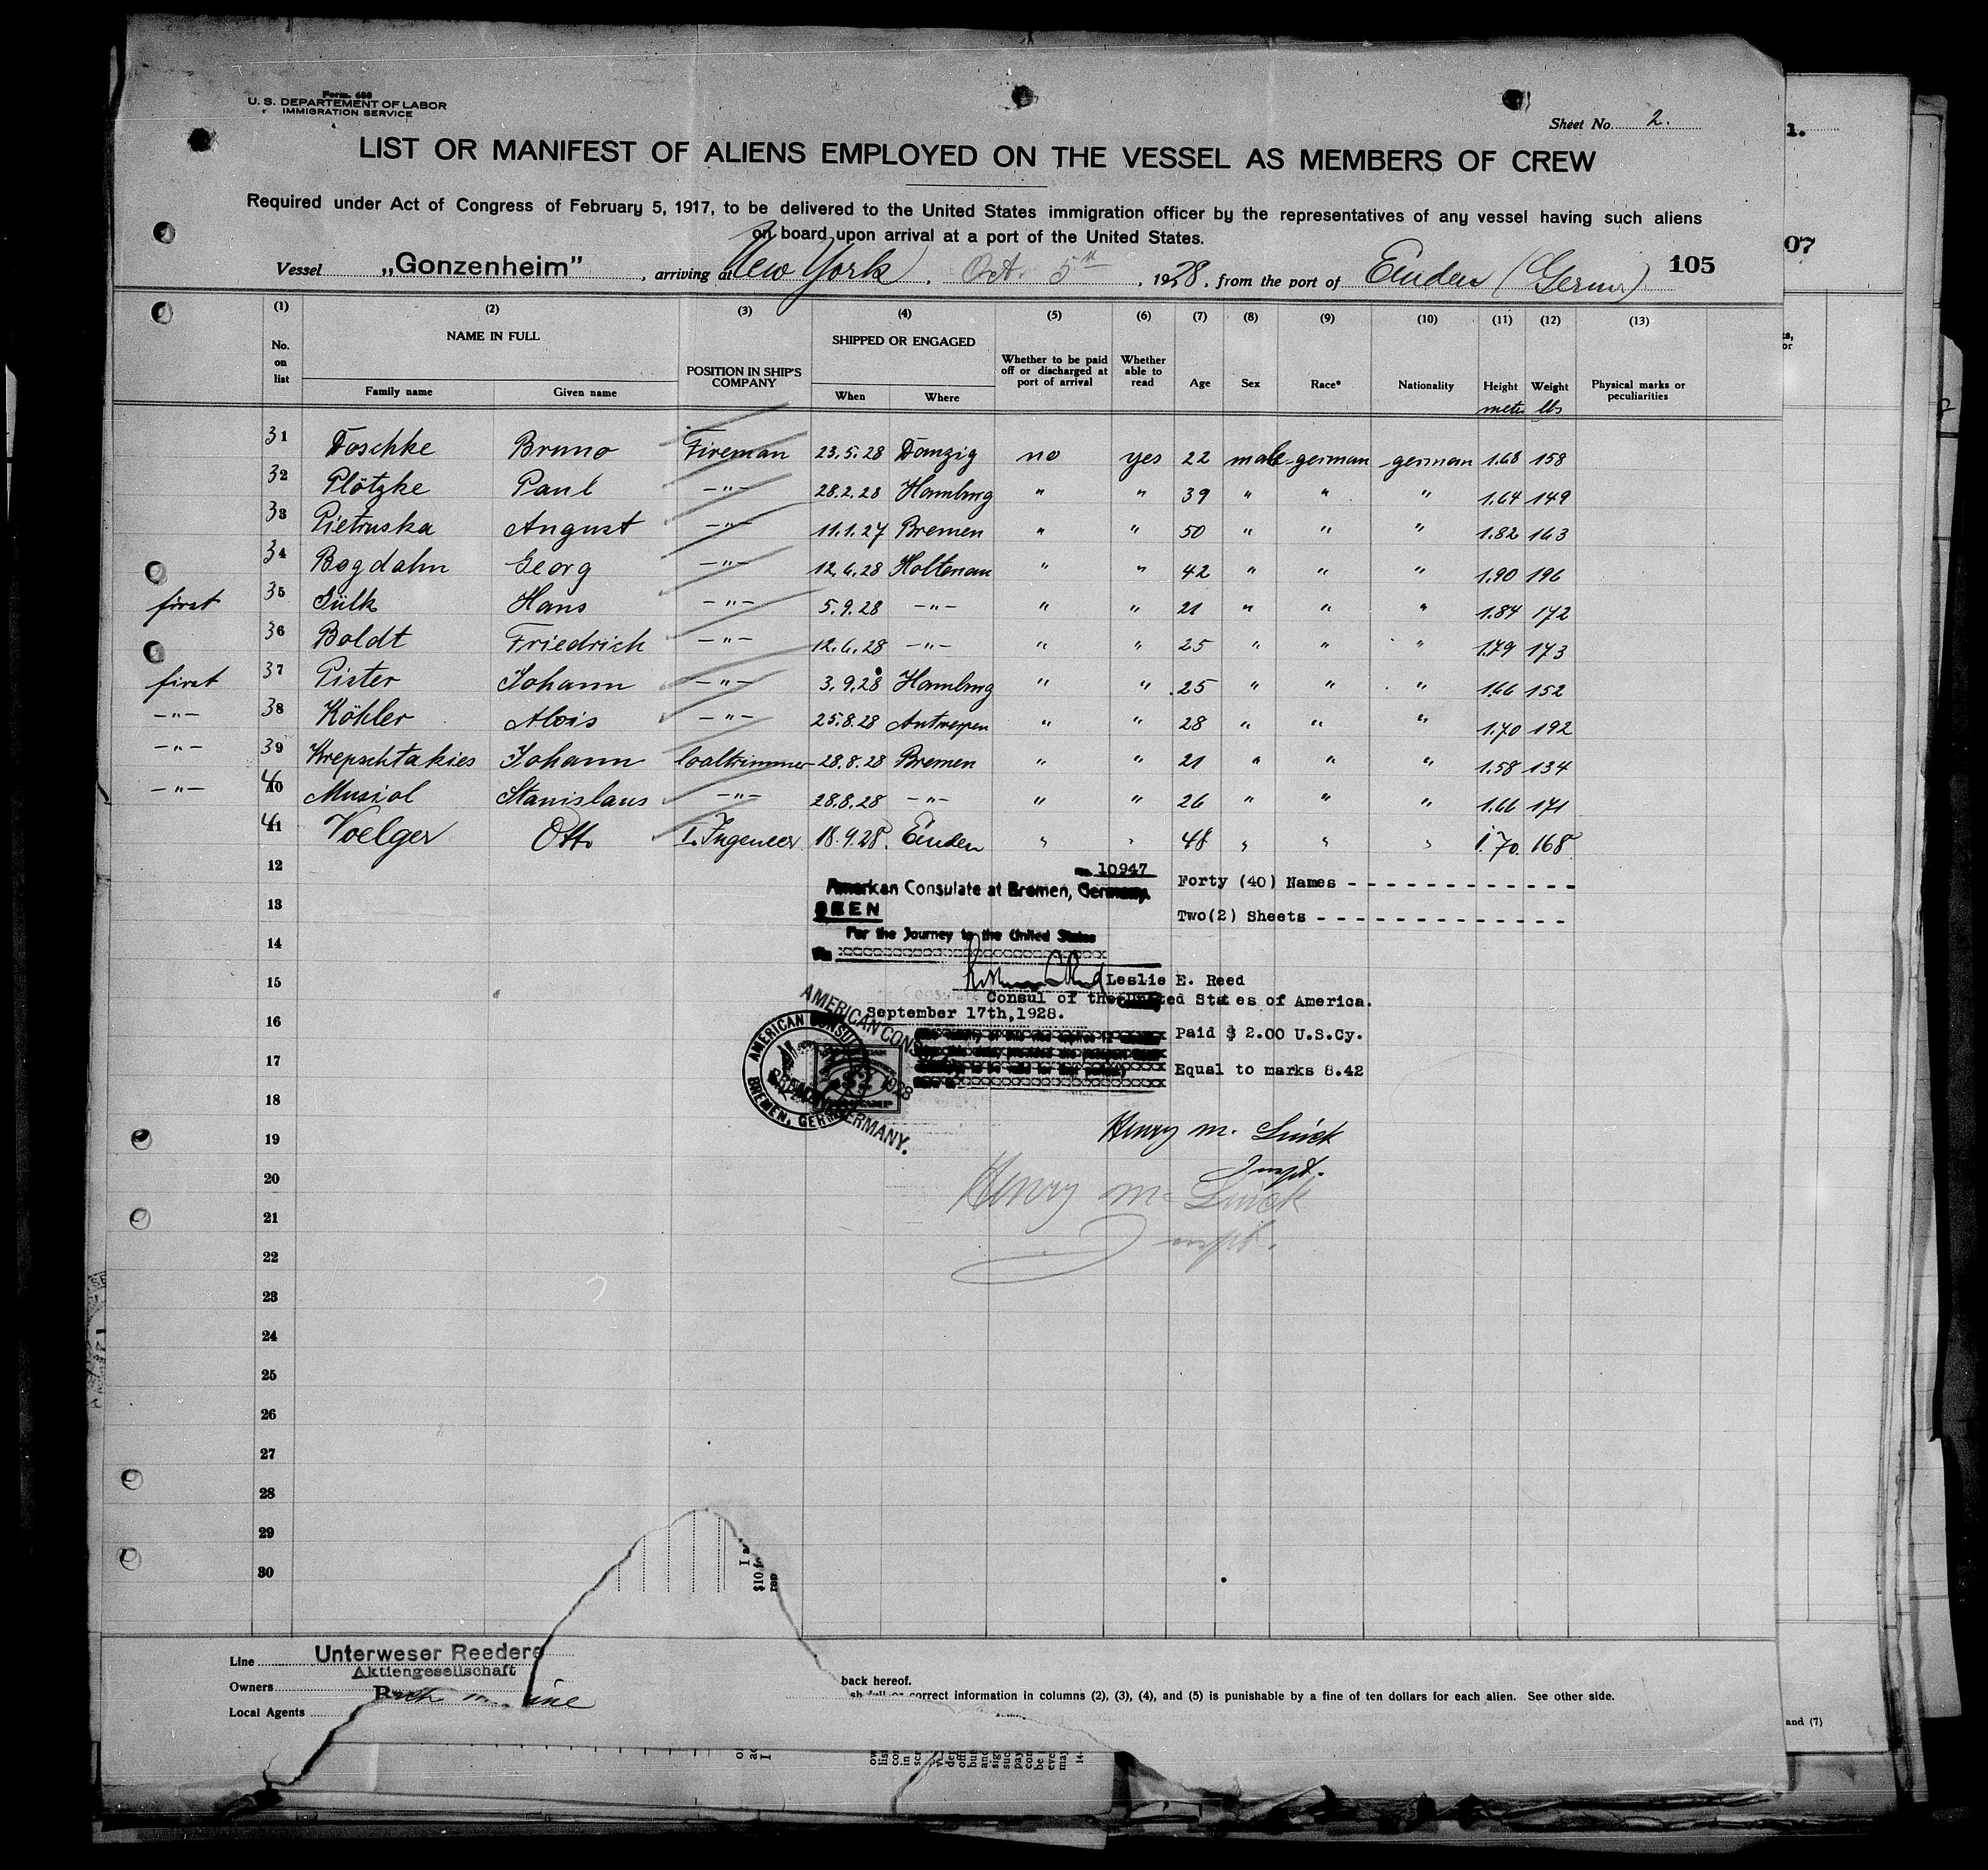 Form. 680
U. S. DEPARTEMENT OF LABOR
IMMIGRATION SERVICE
Sheet No. 2.
LIST OR MANIFEST OF ALIENS EMPLOYED ON THE VESSEL AS MEMBERS OF CREW
Required under Act of Congress of February 5, 1917, to be delivered to the United States immigration officer by the representatives of any vessel having such aliens
on board upon arrival at a port of the United States.
Vessel „Gonzenheim", arriving at New York, Oct. 5th, 1928, from the port of Emden (Germ) 105
07
1.
(1) (2) (3) (4) (5) (6) (7) (8) (9) (10) (11) (12) (13)
No. on list NAME IN FULL POSITION IN SHIP'S COMPANY SHIPPED OR ENGAGED Whether to be paid off or discharged at port of arrival Whether able to read Age Sex Race* Nationality Height Weight Physical marks or peculiarities
Family name Given name When Where meter lbs
31 Doschke Bruno Fireman 23.5.28 Danzig no yes 22 male german german 1.68 158
32 Plötzke Paul -"- 28.2.28 Hamburg " " 39 " " " 1.64 149
33 Pietruska August -"- 11.1.27 Bremen " " 50 " " " 1.82 163
34 Bogdahn Georg -"- 12.6.28 Holtenau " " 42 " " " 1.90 196
first 35 Sülk Hans -"- 5.9.28 -"- " " 21 " " " 1.84 172
36 Boldt Friedrich -"- 12.6.28 -"- " " 25 " " " 1.79 173
first 37 Pister Johann -"- 3.9.28 Hamburg " " 25 " " " 1.66 152
-"- 38 Köhler Alois -"- 25.8.28 Antwerpen " " 28 " " " 1.70 192
-"- 39 Krepschtakies Johann Coaltrimmer 28.8.28 Bremen " " 21 " " " 1.58 134
-"- 40 Musiol Stanislaus -"- 28.8.28 -"- " " 26 " " " 1.66 171
41 Voelger Otto I. Ingeneer 18.9.28. Emden " " 48 " " " 1.70. 168
12
No. 10947
American Consulate at Bremen, Germany.
Forty (40) Names - - - - - - - - - - - -
13
SEEN
Two(2) Sheets - - - - - - - - - - -
For the Journey to the United States
14
15
Leslie E. Reed
Consul of the United States of America.
September 17th, 1928.
16
Paid $ 2.00 U.S.Cy.
17
Equal to marks 8.42
AMERICAN CONSUL
BREMEN, GERMANY.
AMERICAN CONSUL
BREMEN, GERMANY.
18
19
Henry M. Quick
Inspt.
20
Henry M. Quick
21
Inspt.
22
23
24
25
26
27
28
29
30
$10
Line Unterweser Reedere
Aktiengesellschaft
Owners
Local Agents
back hereof.
correct information in columns (2), (3), (4), and (5) is punishable by a fine of ten dollars for each alien. See other side.
and (7)